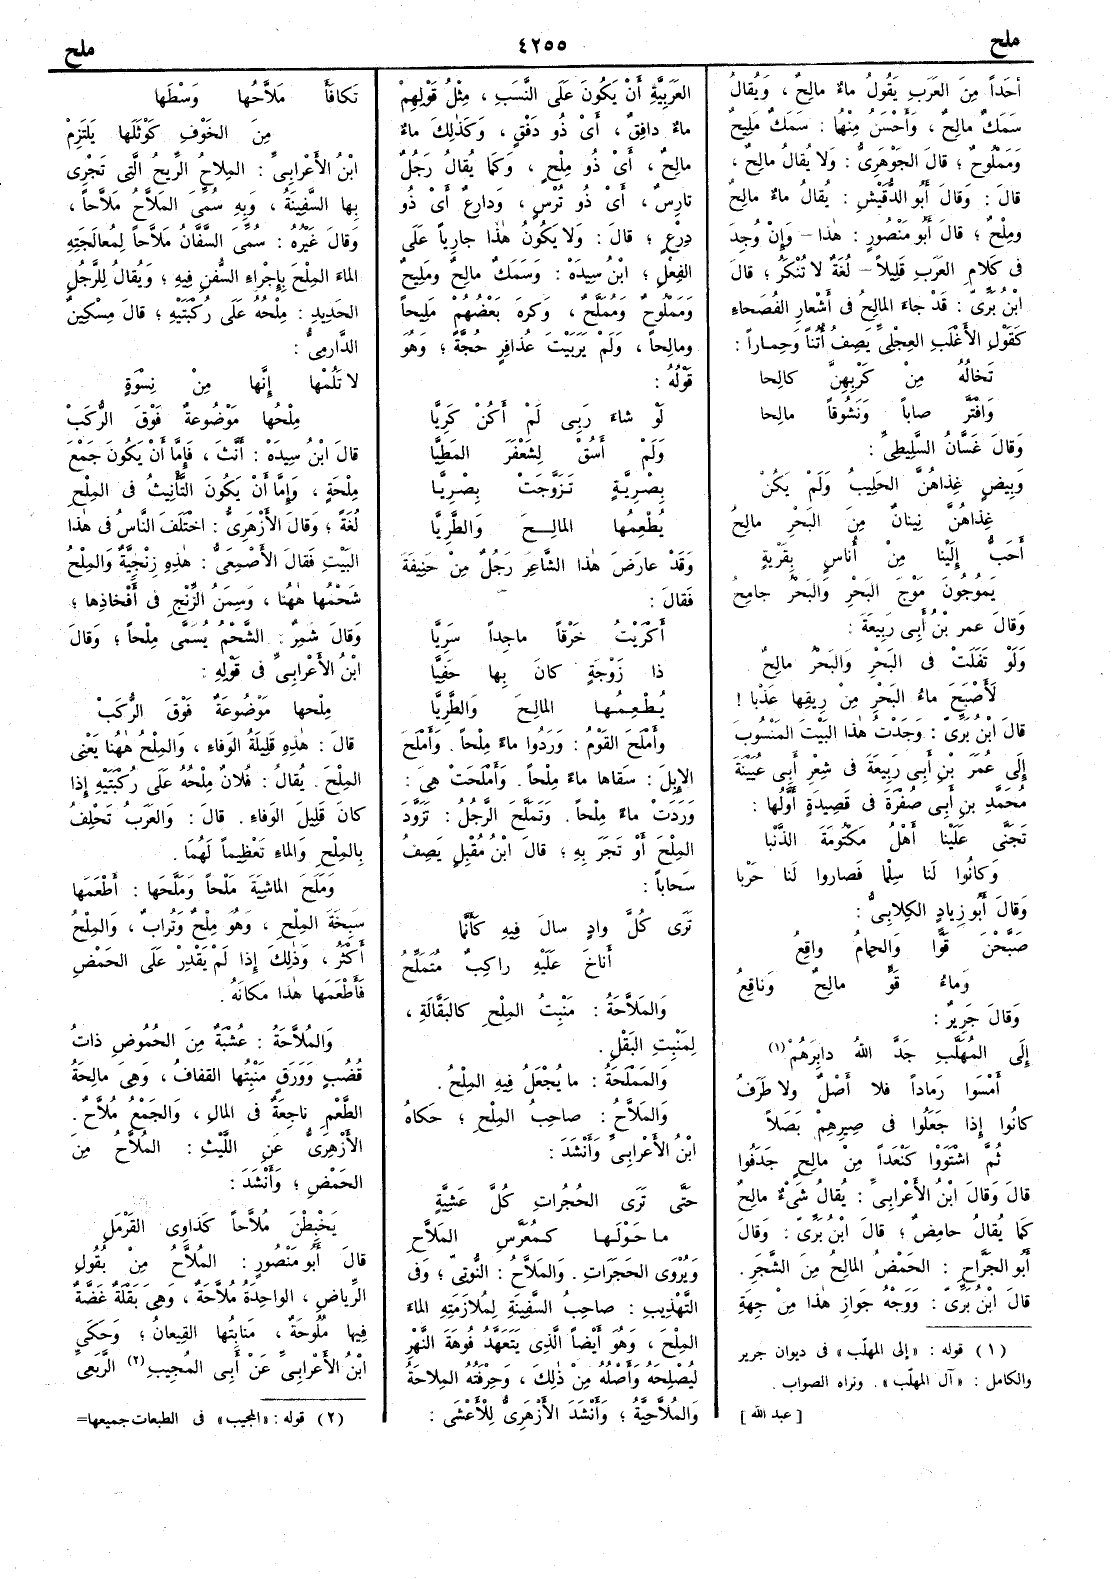 ملح
٤٢٥٥
ملح
أحَداً مِنَ العَرَبِ يَقُولُ ماءٌ مالِحٌ ، وَيُقالُ
سَمَكٌ مالِحٌ ، وَأَحْسَنُ مِنْها : سَمَكٌ مَلِيحٌ
وَمَمْلُوحٌ ؛ قالَ الجَوْهَرِىُّ : وَلا يُقالُ مالِحٌ ،
قالَ : وَقالَ أَبُو الدُّقَيْشِ : يُقالُ ماءٌ مالِحٌ
ومِلْحٌ ؛ قالَ أَبُو مَنْصُورٍ : هٰذا – وَإِنْ وُجِدَ
فى كَلامِ العَرَبِ قَلِيلاً – لُغَةٌ لا تُنْكَرُ ؛ قالَ
ابْنُ بَرِّىّ : قَدْ جاءَ المالِحُ فى أَشْعارِ الفُصَحاءِ
كَقَوْلِ الأَغْلَبِ العِجْلِىِّ يَصِفُ أُتُناً وَحِماراً :
تَخالُهُ مِنْ كَرْبِهِنَّ كالِحا
وَافْتَرَّ صاباً وَنَشُوقاً مالِحا
وَقالَ غَسَّانُ السَّلِيطِىُّ :
وَبِيضٍ غِذاهُنَّ الحَلِيبُ وَلَمْ يَكُنْ
غِذاهُنَّ نِينانٌ مِنَ البَحْرِ مالِحُ
أَحَبُّ إِلَيْنا مِنْ أُناسٍ بِقَرْيَةٍ
يَمُوجُونَ مَوْجَ البَحْرِ وَالبَحْرُ جامِحُ
وَقالَ عمر بْنُ أَبِى رَبِيعَةَ :
وَلَوْ تَفَلَتْ فى البَحْرِ وَالبَحْرُ مالِحٌ
لَأَصْبَحَ ماءُ البَحْرِ مِنْ رِيقِها عَذْبا !
قالَ ابْنُ بَرِّىّ : وَجَدْتُ هٰذا البَيْتَ المَنْسُوبَ
إِلَى عُمَرَ بْنِ أَبِى رَبِيعَةَ فى شِعْرِ أَبِى عُيَيْنَةَ
مُحَمَّدِ بنِ أَبِى صُفْرَةَ فى قَصِيدَةٍ أَوَّلُها :
تَجَنَّى عَلَيْنا أَهْلُ مَكْتُومَةَ الذَّنْبا
وَكانُوا لَنا سِلْمًا فَصاروا لَنا حَرْبا
وَقالَ أَبُو زِيادٍ الكِلابِىُّ :
صَبَّحْنَ قَوًّا وَالحِمامُ واقِعُ
وَماءُ قَوٍّ مالِحٌ وَناقِعُ
وَقالَ جَرِيرٌ :
إِلَى المُهَلَّبِ جَدَّ اللهُ دابِرَهُمْ (١)
أَمْسَوا رَماداً فَلا أَصْلٌ ولا طَرَفُ
كانُوا إِذا جَعَلُوا فى صِيرِهِمْ بَصَلاً
ثُمَّ اشْتَوَوْا كَنْعَداً مِنْ مالِحٍ جَدَفُوا
قالَ وَقالَ ابْنُ الأَعْرابِىِّ : يُقالُ شَىْءٌ مالِحٌ
كَما يُقالُ حامِضٌ ؛ قالَ ابْنُ بَرِّىّ : وَقالَ
أَبُو الجَرَّاحِ : الحَمْضُ المالِحُ مِنَ الشَّجَرِ .
قالَ ابْنُ بَرِّىّ : وَوَجْهُ جَوازِ هٰذا مِنْ جِهَةِ
(١) قوله : «إلى المهلّب» فى ديوان جرير
والكامل : «آل المهلّب» . ونراه الصواب .
[ عبد الله ]
العَرَبِيَّةِ أَنْ يَكُونَ عَلَى النَّسَبِ ، مِثْلُ قَوْلِهِمْ
ماءٌ دافِقٌ ، أَىْ ذُو دَفْقٍ ، وَكَذٰلِكَ ماءٌ
مالِحٌ ، أَىْ ذُو مِلْحٍ ، وَكَما يُقالُ رَجُلٌ
تارِسٌ ، أَىْ ذُو تُرْسٍ ، وَدارِعٌ أَىْ ذُو
دِرْعٍ ؛ قالَ : وَلا يَكُونُ هٰذا جارِياً عَلَى
الفِعْلِ ؛ ابْنُ سِيدَهْ : وَسَمَكٌ مالِحٌ ومَلِيحٌ
وَمَمْلُوحٌ وَمُمَلَّحٌ ، وَكَرِهَ بَعْضُهُمْ مَلِيحاً
ومالِحاً ، وَلَمْ يَرَبَيْتَ عُذافِرٍ حُجَّةً ؛ وَهُوَ
قَوْلُهُ :
لَوْ شاءَ رَبِى لَمْ أَكُنْ كَرِيًّا
وَلَمْ أَسُقْ لِشَعْفَرَ المَطِيَّا
بِصْرِيَّةٍ تَزَوَّجَتْ بِصْرِيَّا
يُطْعِمُها المالِحَ وَالطَّرِيَّا
وَقَدْ عارَضَ هٰذا الشَّاعِرَ رَجُلٌ مِنْ حَنِيفَةَ
فَقالَ :
أَكْرَيْتُ خَرْقاً ماجِداً سَرِيَّا
ذا زَوْجَةٍ كانَ بِها حَفِيَّا
يُطْعِمُها المالِحَ وَالطَّرِيَّا
وَأَمْلَحَ القَوْمُ : وَرَدُوا ماءً مِلْحاً . وَأَمْلَحَ
الإِبِلَ : سَقاها ماءً مِلْحاً . وَأَمْلَحَتْ هِىَ :
وَرَدَتْ ماءً مِلْحاً . وَتَمَلَّحَ الرَّجُلُ : تَزَوَّدَ
المِلْحَ أَوْ تَجَرَ بِهِ ؛ قالَ ابْنُ مُقْبِلٍ يَصِفُ
سَحاباً :
تَرَى كُلَّ وادٍ سالَ فِيهِ كَأَنَّما
أَناخَ عَلَيْهِ راكِبٌ مُتَمَلِّحُ
وَالمَلاَّحَةُ : مَنْبِتُ المِلْحِ كالبَقَّالَةِ ،
لِمَنْبِتِ البَقْلِ .
وَالمَمْلَحَةُ : ما يُجْعَلُ فِيهِ المِلْحُ .
وَالمَلاَّحُ : صاحِبُ المِلْحِ ؛ حَكاهُ
ابْنُ الأَعْرابِىِّ وَأَنْشَدَ :
حَتَّى تَرَى الحُجُراتِ كُلَّ عَشِيَّةٍ
ما حَوْلَها كَمُعَرَّسِ المَلاَّحِ
وَيُرْوَى الحَجَراتِ . وَالمَلاَّحُ : النُّوتِىُّ ؛ وَفى
التَّهْذِيبِ : صاحِبُ السَّفِينَةِ لِمُلازَمَتِهِ الماءَ
المِلْحَ ، وَهُوَ أَيْضاً الَّذِى يَتَعَهَّدُ فُوهَةَ النَّهْرِ
لِيُصْلِحَهُ وَأَصْلُهُ مِنْ ذٰلِكَ ، وَحِرْفَتُهُ المِلاحَةُ
وَالمُلاَّحِيَّةُ ؛ وَأَنْشَدَ الأَزْهَرِىُّ لِلْأَعْشَى :
تَكافَأَ مَلاَّحُها وَسْطَها
مِنَ الخَوْفِ كَوْثَلَها يَلْتَزِمْ
ابْنُ الأَعْرابِىِّ : المِلاحُ الرِّيحُ الَّتِى تَجْرِى
بِها السَّفِينَةُ ، وَبِهِ سُمِّىَ المَلاَّحُ مَلاَّحاً ،
وَقالَ غَيْرُهُ : سُمِّىَ السَّفَّانُ مَلاَّحاً لِمُعالَجَتِهِ
الماءَ المِلْحَ بِإِجْراءِ السُّفُنِ فِيهِ ؛ وَيُقالُ لِلرَّجُلِ
الحَدِيدِ : مِلْحُهُ عَلَى رُكْبَتَيْهِ ؛ قالَ مِسْكِينٌ
الدَّارِمِىُّ :
لا تَلُمْها إِنَّها مِنْ نِسْوَةٍ
مِلْحُها مَوْضُوعةٌ فَوْقَ الرُّكَبْ
قالَ ابْنُ سِيدَهْ : أَنَّثَ ، فَإِمَّا أَنْ يَكُونَ جَمْعَ
مِلْحَةٍ ، وَإِمَّا أَنْ يَكُونَ التَّأْنِيثُ فى المِلْحِ
لُغَةً ؛ وَقالَ الأَزْهَرِىُّ : اخْتَلَفَ النَّاسُ فى هٰذا
البَيْتِ فَقالَ الأَصْمَعِىُّ : هٰذِهِ زِنْجِيَّةٌ وَالمِلْحُ
شَحْمُها هٰهُنا ، وَسِمَنُ الزِّنْجِ فى أَفْخاذِها ؛
وَقالَ شَمِرٌ : الشَّحْمُ يُسَمَّى مِلْحاً ؛ وَقالَ
ابْنُ الأَعْرابِىِّ فى قَوْلِهِ :
مِلْحها مَوْضُوعَةٌ فَوْقَ الرُّكَبْ
قالَ : هٰذِهِ قَلِيلَةُ الوَفاءِ ، وَالمِلْحُ هٰهُنا يَعْنِى
المِلْحَ . يُقالُ : فُلانٌ مِلْحُهُ عَلَى رُكْبَتَيْهِ إِذا
كانَ قَلِيلَ الوَفاءِ . قالَ : وَالعَرَبُ تَحْلِفُ
بِالمِلْحِ وَالماءِ تَعْظِيماً لَهُمَا .
وَمَلَحَ الماشِيَةَ مَلْحاً وَمَلَّحَها : أَطْعَمَها
سَبِخَةَ المِلْحِ ، وَهُوَ مِلْحٌ وَتُرابٌ ، وَالمِلْحُ
أَكْثَرُ ، وَذٰلِكَ إِذا لَمْ يَقْدِرْ عَلَى الحَمْضِ
فَأَطْعَمَها هٰذا مَكانَهُ .
وَالمُلاَّحَةُ : عُشْبَةٌ مِنَ الحُمُوضِ ذاتُ
قُضُبٍ وَوَرَقٍ مَنْبِتُها القفافُ ، وَهِىَ مالِحَةُ
الطَّعْمِ ناجِعَةٌ فى المالِ ، وَالجَمْعُ مُلاَّحٌ .
الأَزْهَرِىُّ عَنِ اللَّيْثِ : المُلاَّحُ مِنَ
الحَمْضِ ؛ وَأَنْشَدَ :
يَخْبِطْنَ مُلاَّحاً كَذاوِى القَرْمَلِ
قالَ أَبُو مَنْصُورٍ : المُلاَّحُ مِنْ بُقُولِ
الرِّياضِ ، الواحِدَةُ مُلاَّحَةٌ ، وَهِىَ بَقْلَةٌ غَضَّةٌ
فِيها مُلُوحَةٌ ، مَنابِتُها القِيعانُ ؛ وَحَكَى
ابْنُ الأَعْرابِىِّ عَنْ أَبِى المُجِيبِ (٢) الرَّبَعِىِّ
(٢) قوله : «المجيب» فى الطبعات جميعها=